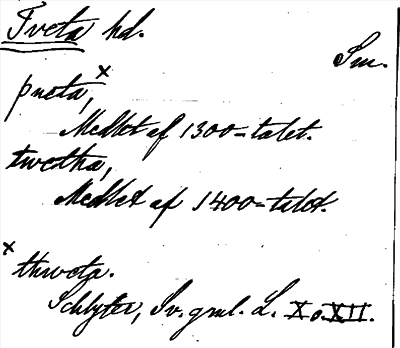 Tveta hd.
Sm.
þueta,×
Medlet af 1300-talet.
twetha,
Medlet af 1400-talet.
× thweta.
Schlyter, Sv. gml. L. X o. XII.